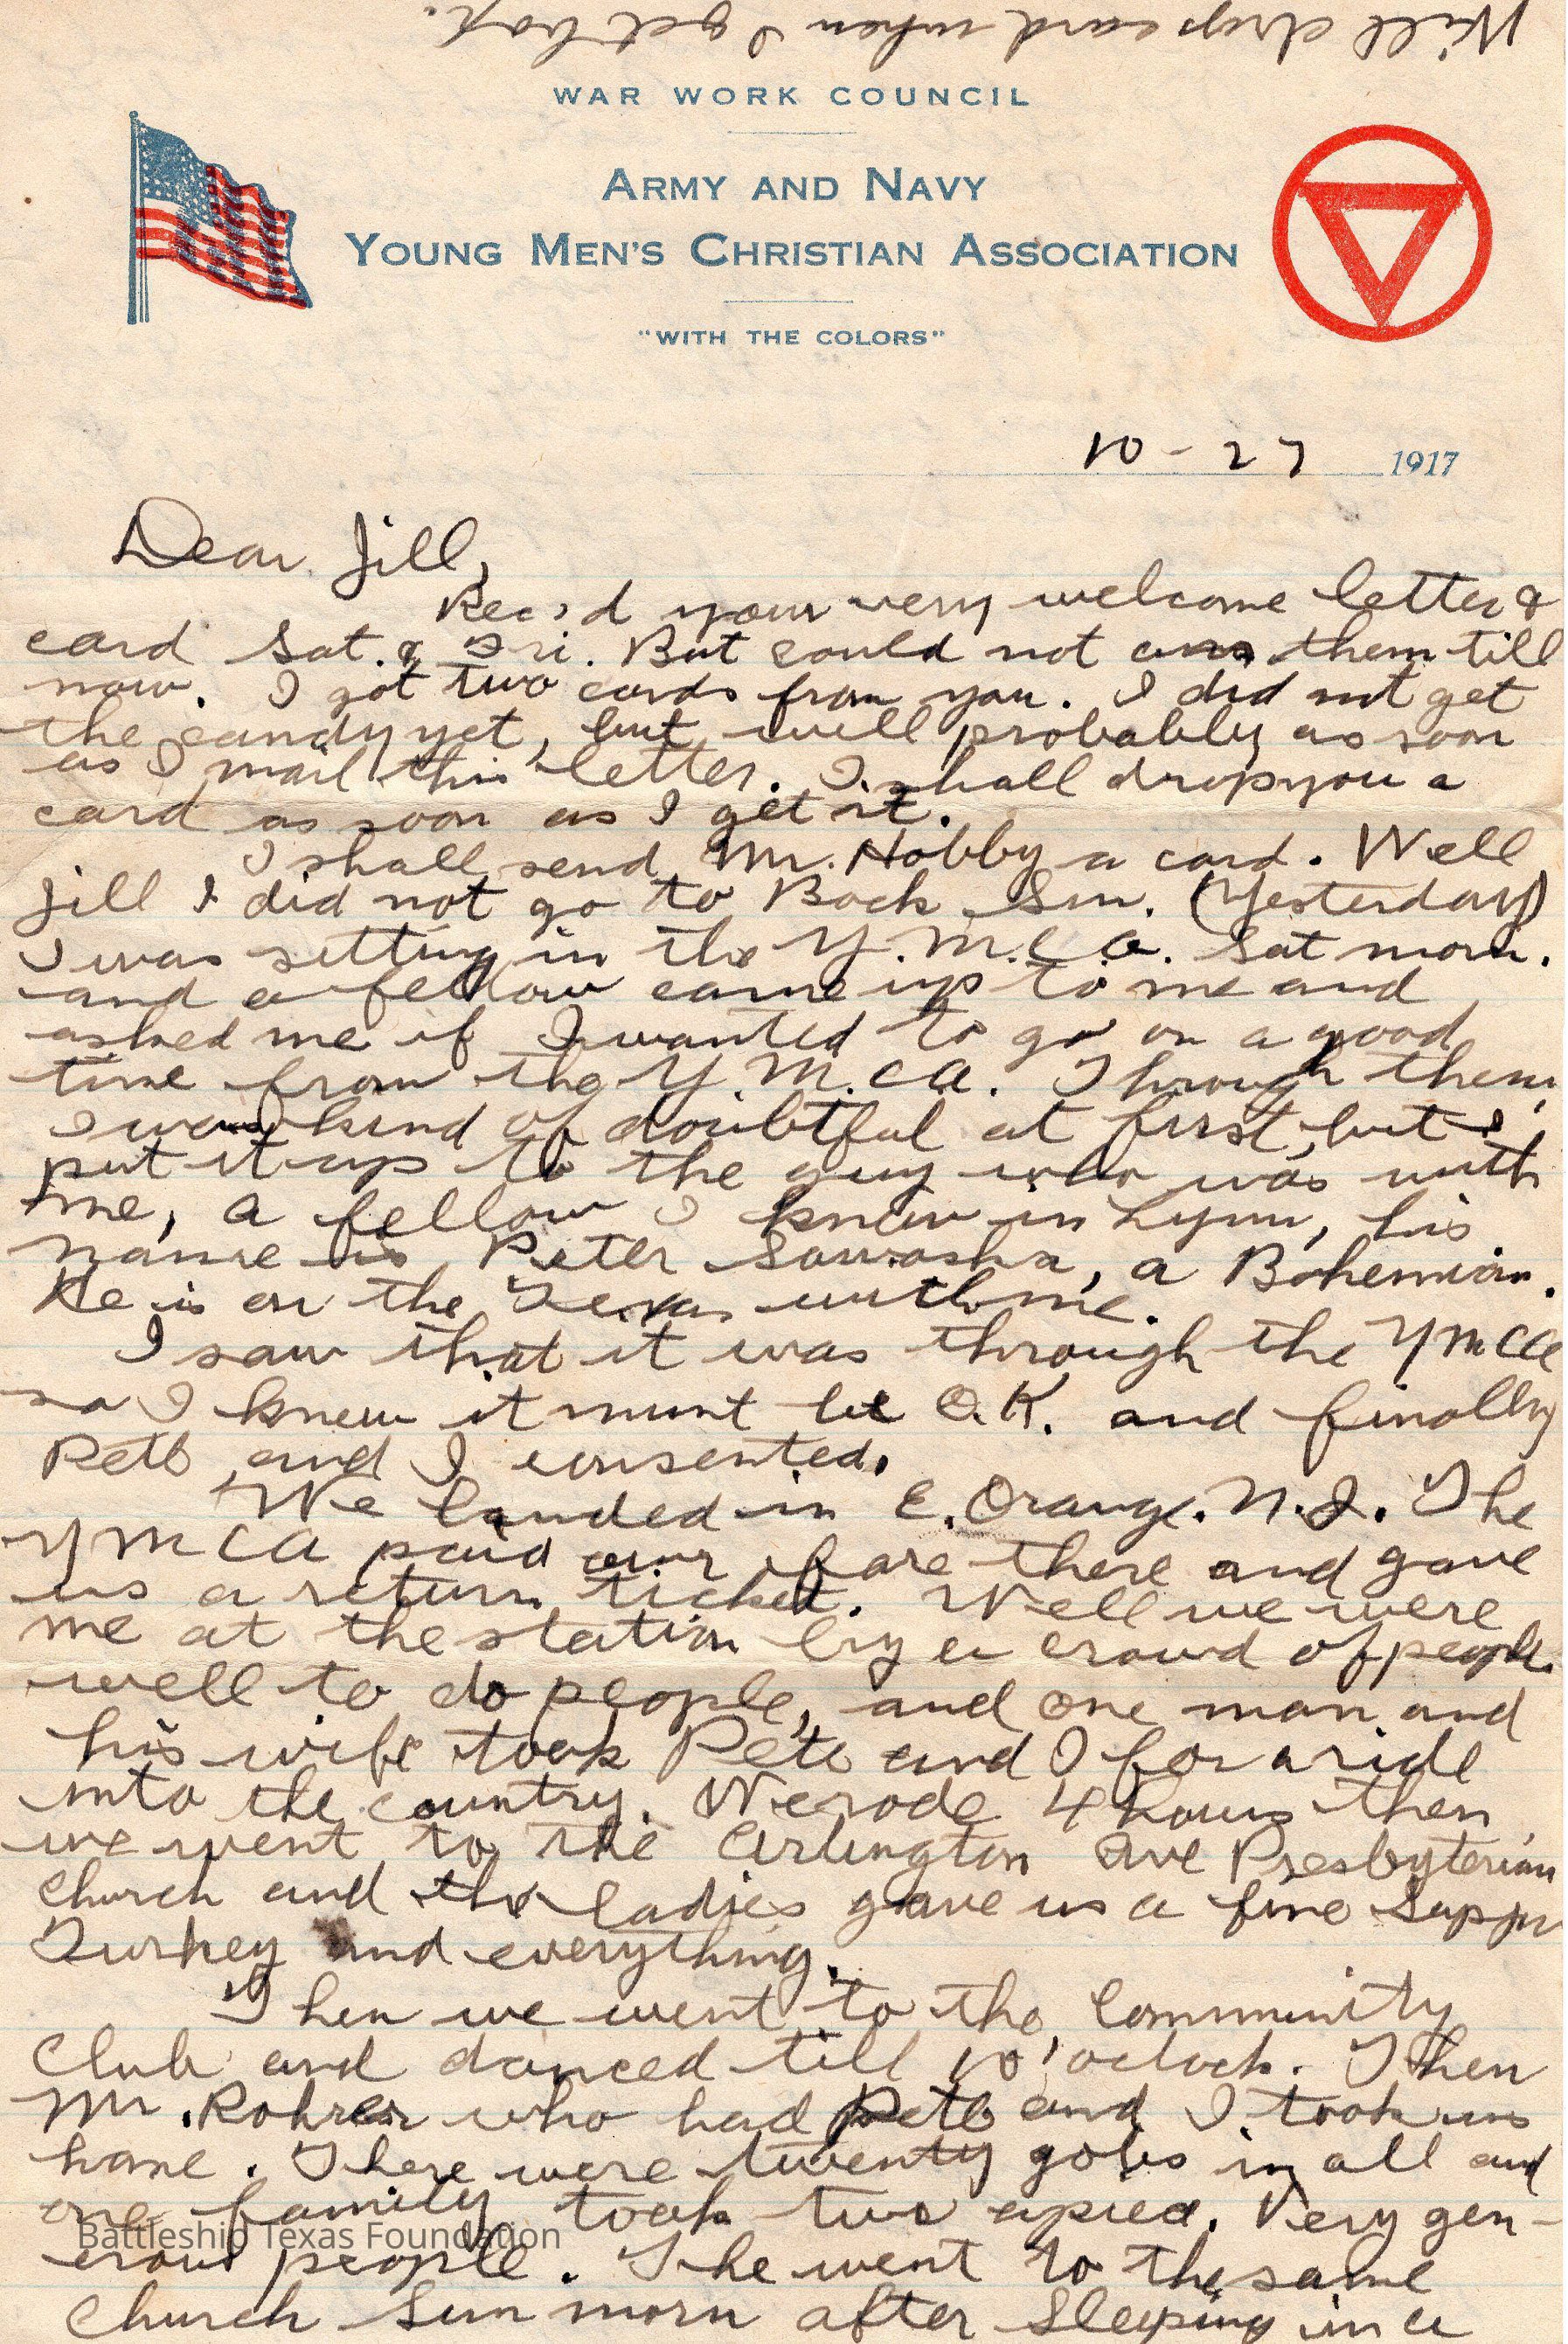 Will drop card when I get box.
WAR WORK COUNCIL
ARMY AND NAVY
YOUNG MEN'S CHRISTIAN ASSOCIATION
"WITH THE COLORS"
10-27 1917
Dear Jill,
Rec'd your very welcome letter &
card Sat. & Fri. But could not ans them till
now. I got two cards from you. I did not get
the candy yet, but will probably as soon
as I mail this letter. I shall drop you a
card as soon as I get it.
I shall send Mr. Hobby a card. Well
Jill I did not go to Back Sun. (Yesterday)
I was setting in the Y.M.C.A. Sat morn.
and a fellow came up to me and
asked me if I wanted to go on a good
time from the Y.M.CA. Through them,
I was kind of doubtful at first, but I
put it up to the guy who was with
me, a fellow I knew in Lynn, his
name is Peter, a Bohemian.
He is on the Texas with me.
I saw that it was through the YMCA
so I knew it must be O.K. and finally
Pete and I consented.
We landed in E. Orange. N.J. The
YMCA paid our fare there and gave
us a return ticket. Well we were
me at the station by a crowd of people.
well to do people, and one man and
his wife took Pete and I for a ride
into the country. We rode 4 hours then
we went to the Arlington Ave Presbyterian
Church and the ladies gave us a fine supper
Turkey and everything.
Then we went to the Community
Club and danced till 10 'oclock. Then
Mr. Rohrer who had Pete and I took us
home. There were twenty gobs in all and
one family took two apiece. Very gen-
erous people. The went to the same
Church Sun morn after sleeping in a
Battleship Texas Foundation